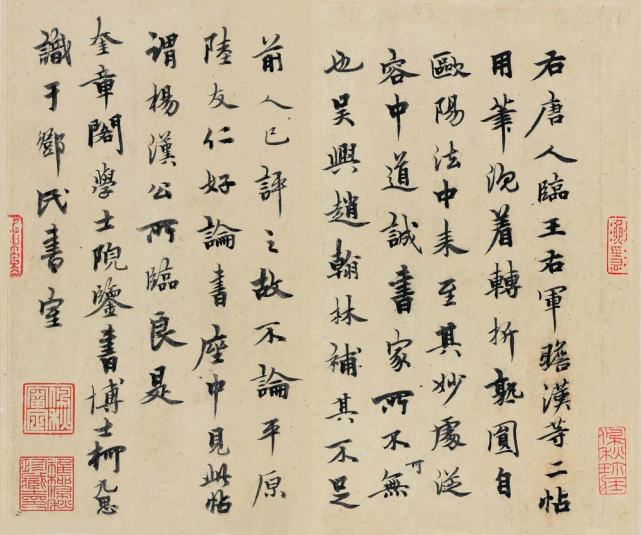 右唐人臨王右軍瞻漢等二帖
用筆沉着轉折熟圓自
歐陽法中来至其妙處從
容中道誠書家所不可無
也吴興趙翰林補其不足
前人已評之故不論平原
陸友仁好論書座中見此帖
謂楊漢公所臨良是
奎章閣學士院鑒書博士柯九思
識于鄧氏書室